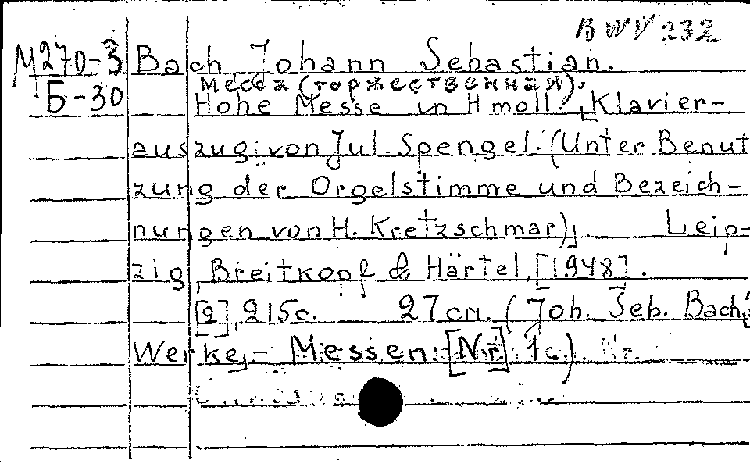 BWV 232
М270-3 Bach Johann Sebastian.
Месса (торжественная).
Б-30 Hohe Messe in H moll, Klavier-
auszug von Jul. Spengel. (Unter Benut
zung der Orgelstimme und Bezeich-
nungen von H. Kretzschmar). Leip-
zig, Breitkopf & Härtel, [1948].
[2], 215c. 27cm. (Joh. Seb. Bach's
Werke,- Messen: [Nr] 1c.)